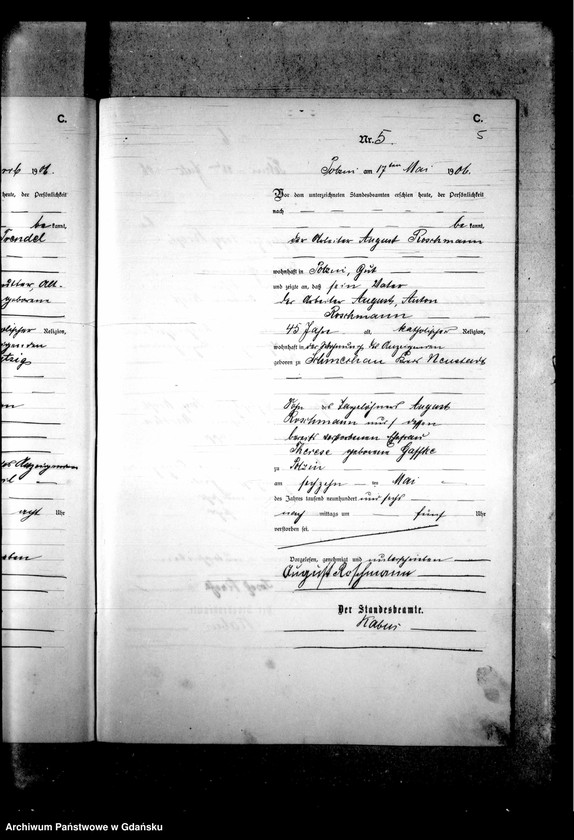 C.
C.
Nr. 5
5
rvb 1906.
Polzin am 17ten Mai 1906.
heute, der Persönlichkeit
Vor dem unterzeichneten Standesbeamten erschien heute, der Persönlichkeit
nach
be kannt,
be kannt,
der Arbeiter August Roschmann
wohnhaft in Polzin, Gut
geborene
und zeigte an, daß sein Vater
der Arbeiter August, Anton
Roschmann
Religion,
45 Jahre alt, katholischer Religion,
wohnhaft in der Wohnung des Anzeigenden
geboren zu Kreis Neustadt
Sohn des Tagelöhners August
Roschmann und dessen
bereits verstorbenen Ehefrau
Therese geborenen Gaffke
zu Polzin
des Anzeigenden
am sechzehn ten Mai
des Jahres tausend neunhundert und sechs
acht Uhr
nach mittags um fünf Uhr
verstorben sei.
Vorgelesen, genehmigt und unterschrieben
August Roschmann
Der Standesbeamte.
Kabus
Archiwum Państwowe w Gdańsku